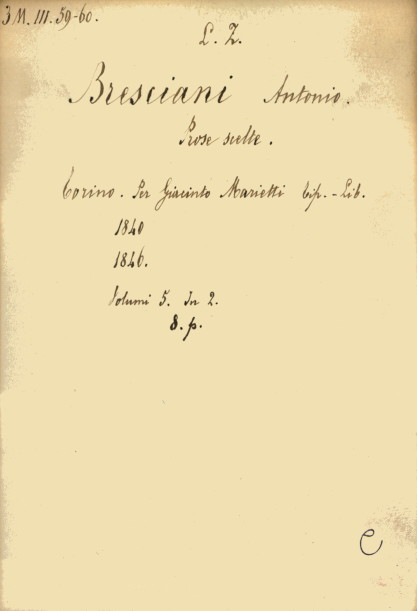 3 M. III. 59-60.
L. Z.
Bresciani Antonio.
Prose scelte.
Torino. Per Giacinto Marietti Tip. - Lib.
1840
1846.
Volumi 5. In 2.
8. p.
C